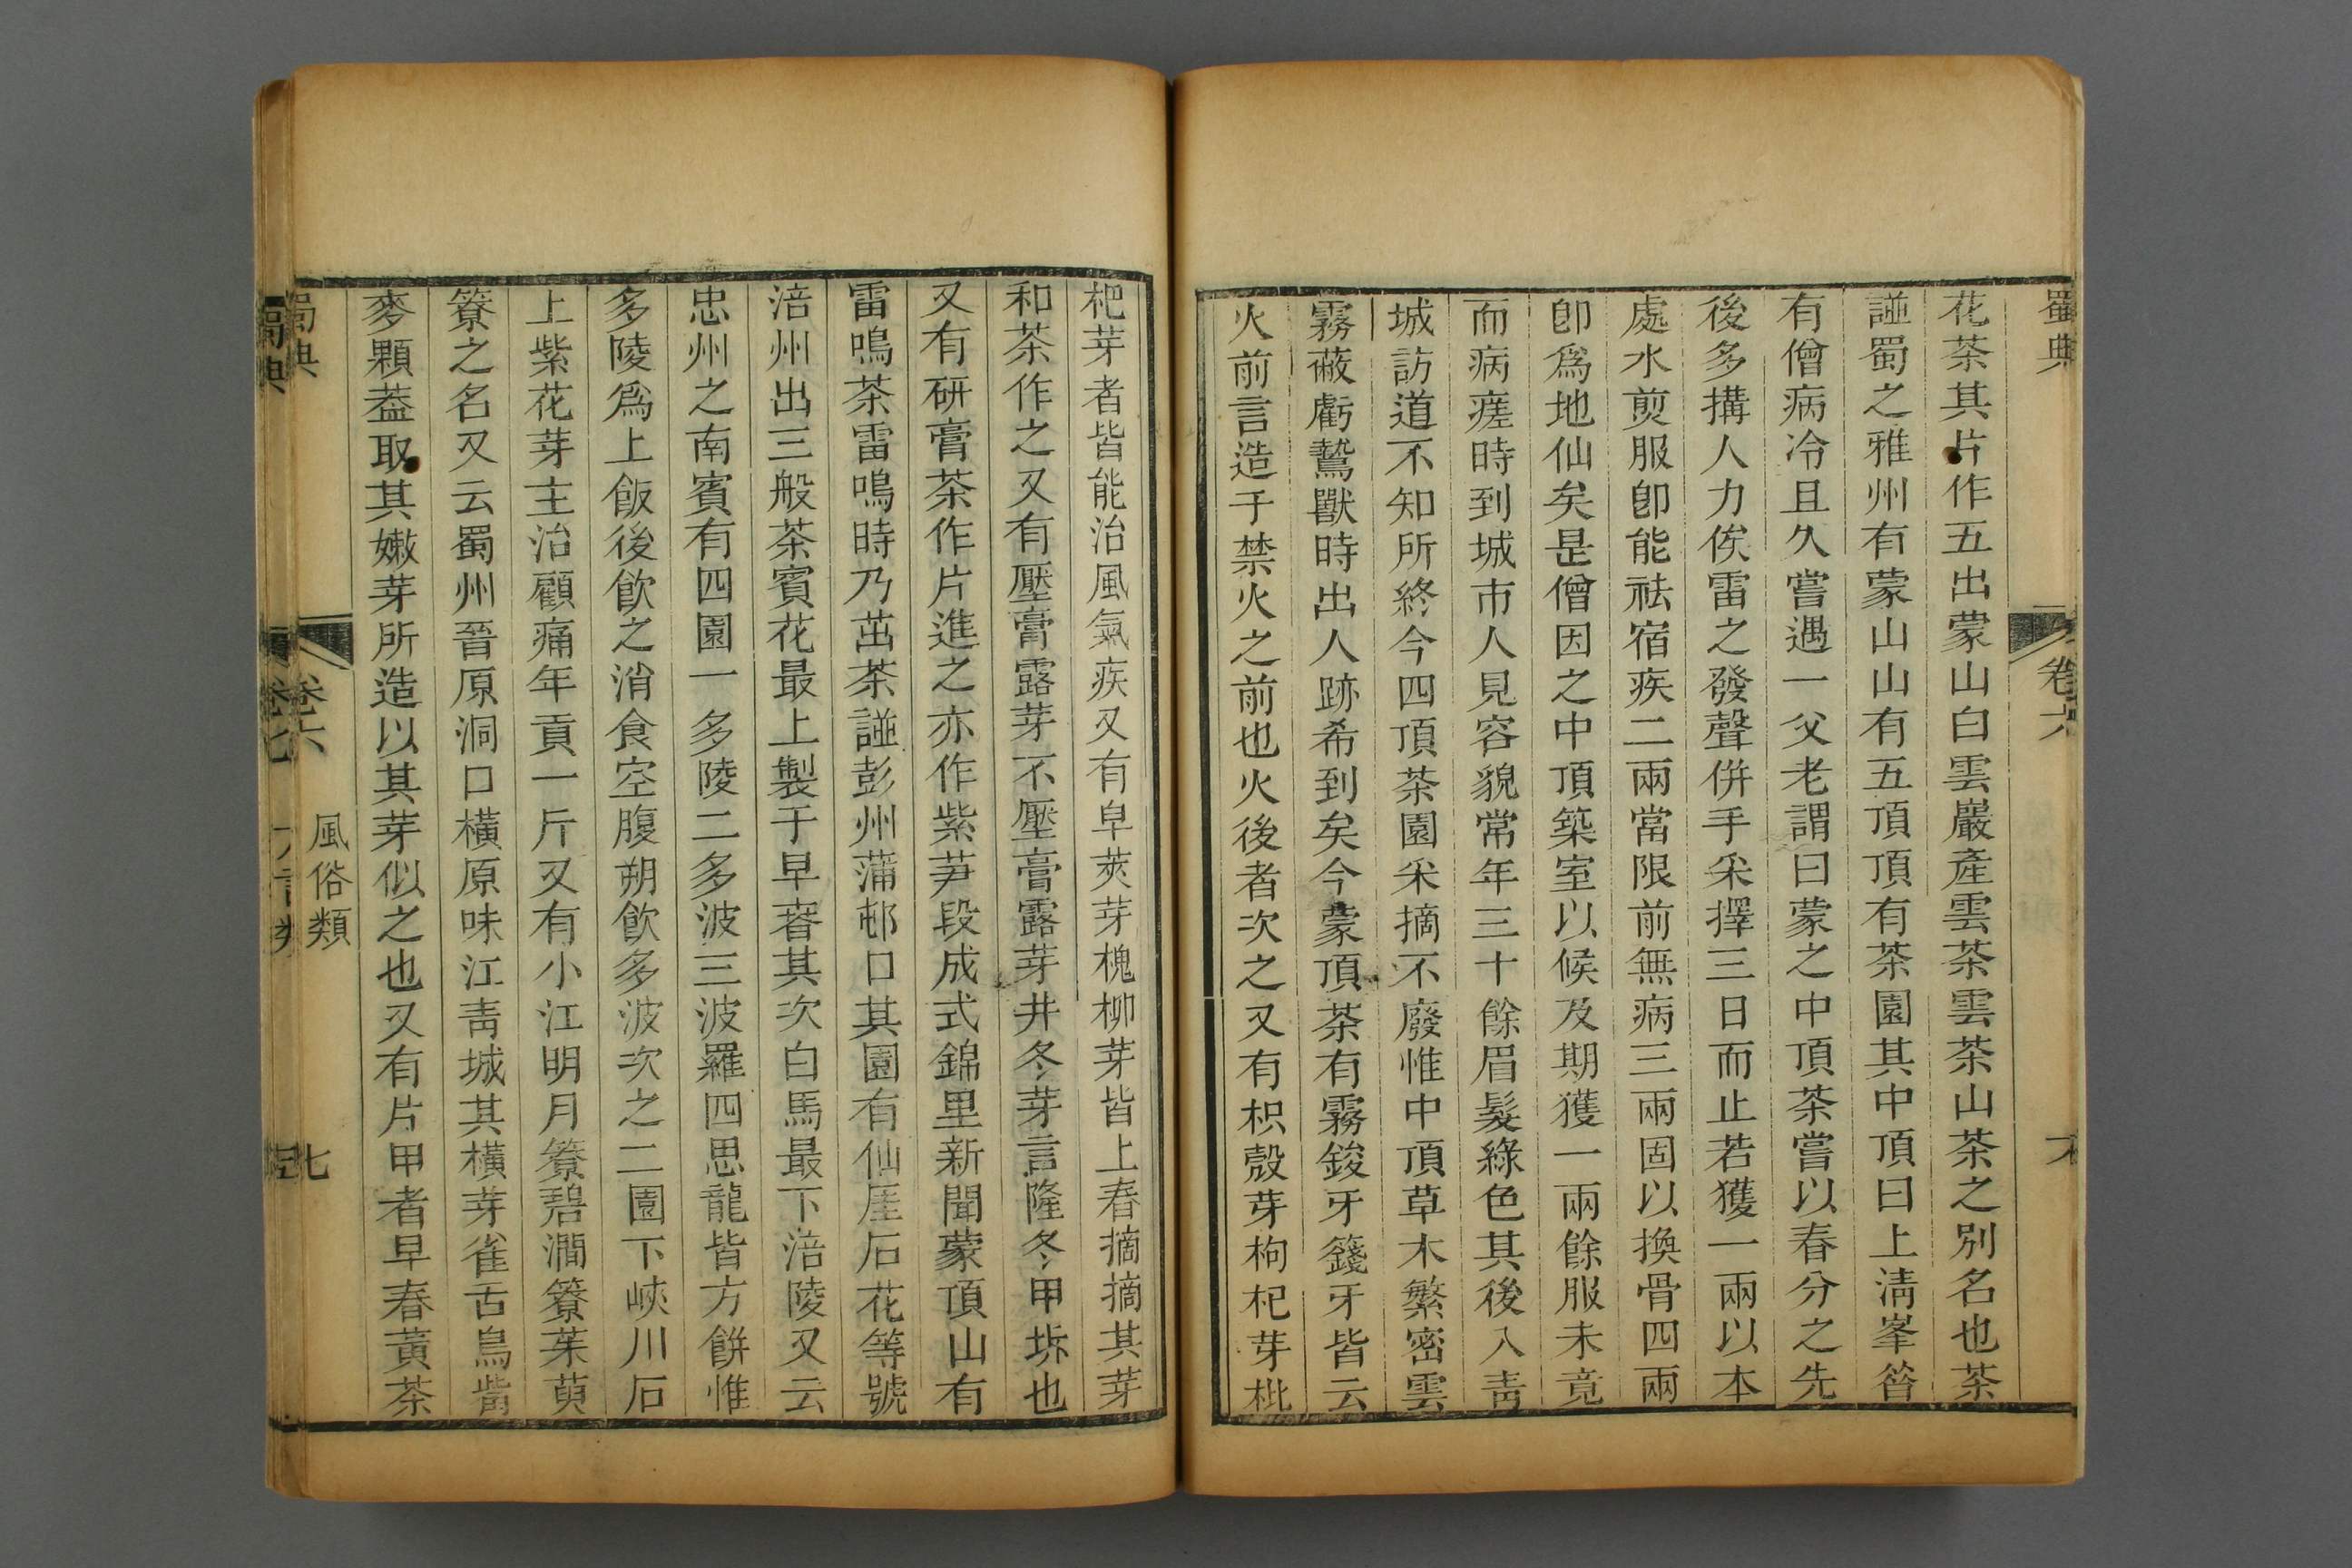 蜀典
卷六
花茶其片作五出蒙山白雲巖產雲茶雲茶山茶之別名也茶
譜蜀之雅州有蒙山山有五頂頂有茶園其中頂曰上淸峯昝
有僧病冷且久嘗遇一父老謂曰蒙之中頂茶嘗以春分之先
後多搆人力俟雷之發聲併手采擇三日而止若獲一兩以本
處水煎服卽能祛宿疾二兩當限前無病三兩固以換骨四兩
卽爲地仙矣是僧因之中頂築室以候及期獲一兩餘服未竟
而病瘥時到城市人見容貌常年三十餘眉髮綠色其後入靑
城訪道不知所終今四頂茶園采摘不廢惟中頂草木繁密雲
霧蔽虧鷙獸時出人跡希到矣今蒙頂茶有霧鋑牙籛牙皆云
火前言造于禁火之前也火後者次之又有枳殼芽枸杞芽枇
杷芽者皆能治風氣疾又有皁莢芽槐柳芽皆上春摘摘其芽
和茶作之又有壓膏露芽不壓膏露芽井冬芽言隆冬甲坼也
又有研膏茶作片進之亦作紫笋段成式錦里新聞蒙頂山有
雷鳴茶雷鳴時乃茁茶譜彭州蒲邨口其園有仙厓石花等號
涪州出三般茶賓花最上製于早春其次白馬最下涪陵又云
忠州之南賓有四園一多陵二多波三波羅四思龍皆方餠惟
多陵爲上飯後飮之消食空腹朔飮多波次之二園下峽川石
上紫花芽主治顧痛年貢一斤又有小江明月簝碧澗簝茱萸
簝之名又云蜀州晉原洞口橫原味江靑城其橫芽雀舌鳥觜
麥顆葢取其嫩芽所造以其芽似之也又有片甲者早春黃茶
蜀典
卷六
風俗類
七